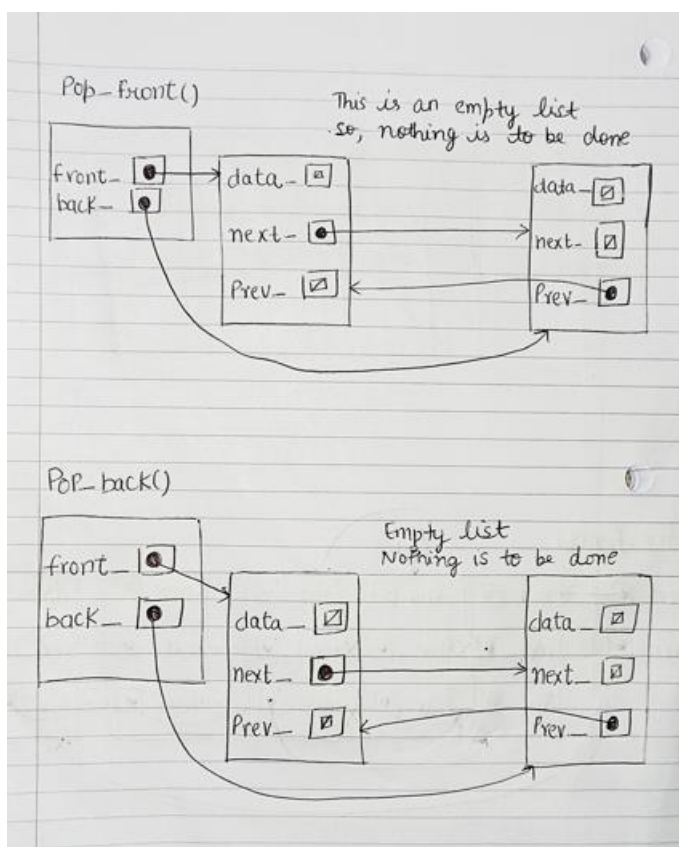 Pop_front()
This is an empty list
so, nothing is to be done
front_
back_
data_
next_
Prev_
data_
next_
Prev_
Pop_back()
Empty list
Nothing is to be done
front_
back_
data_
next_
Prev_
data_
next_
Prev_